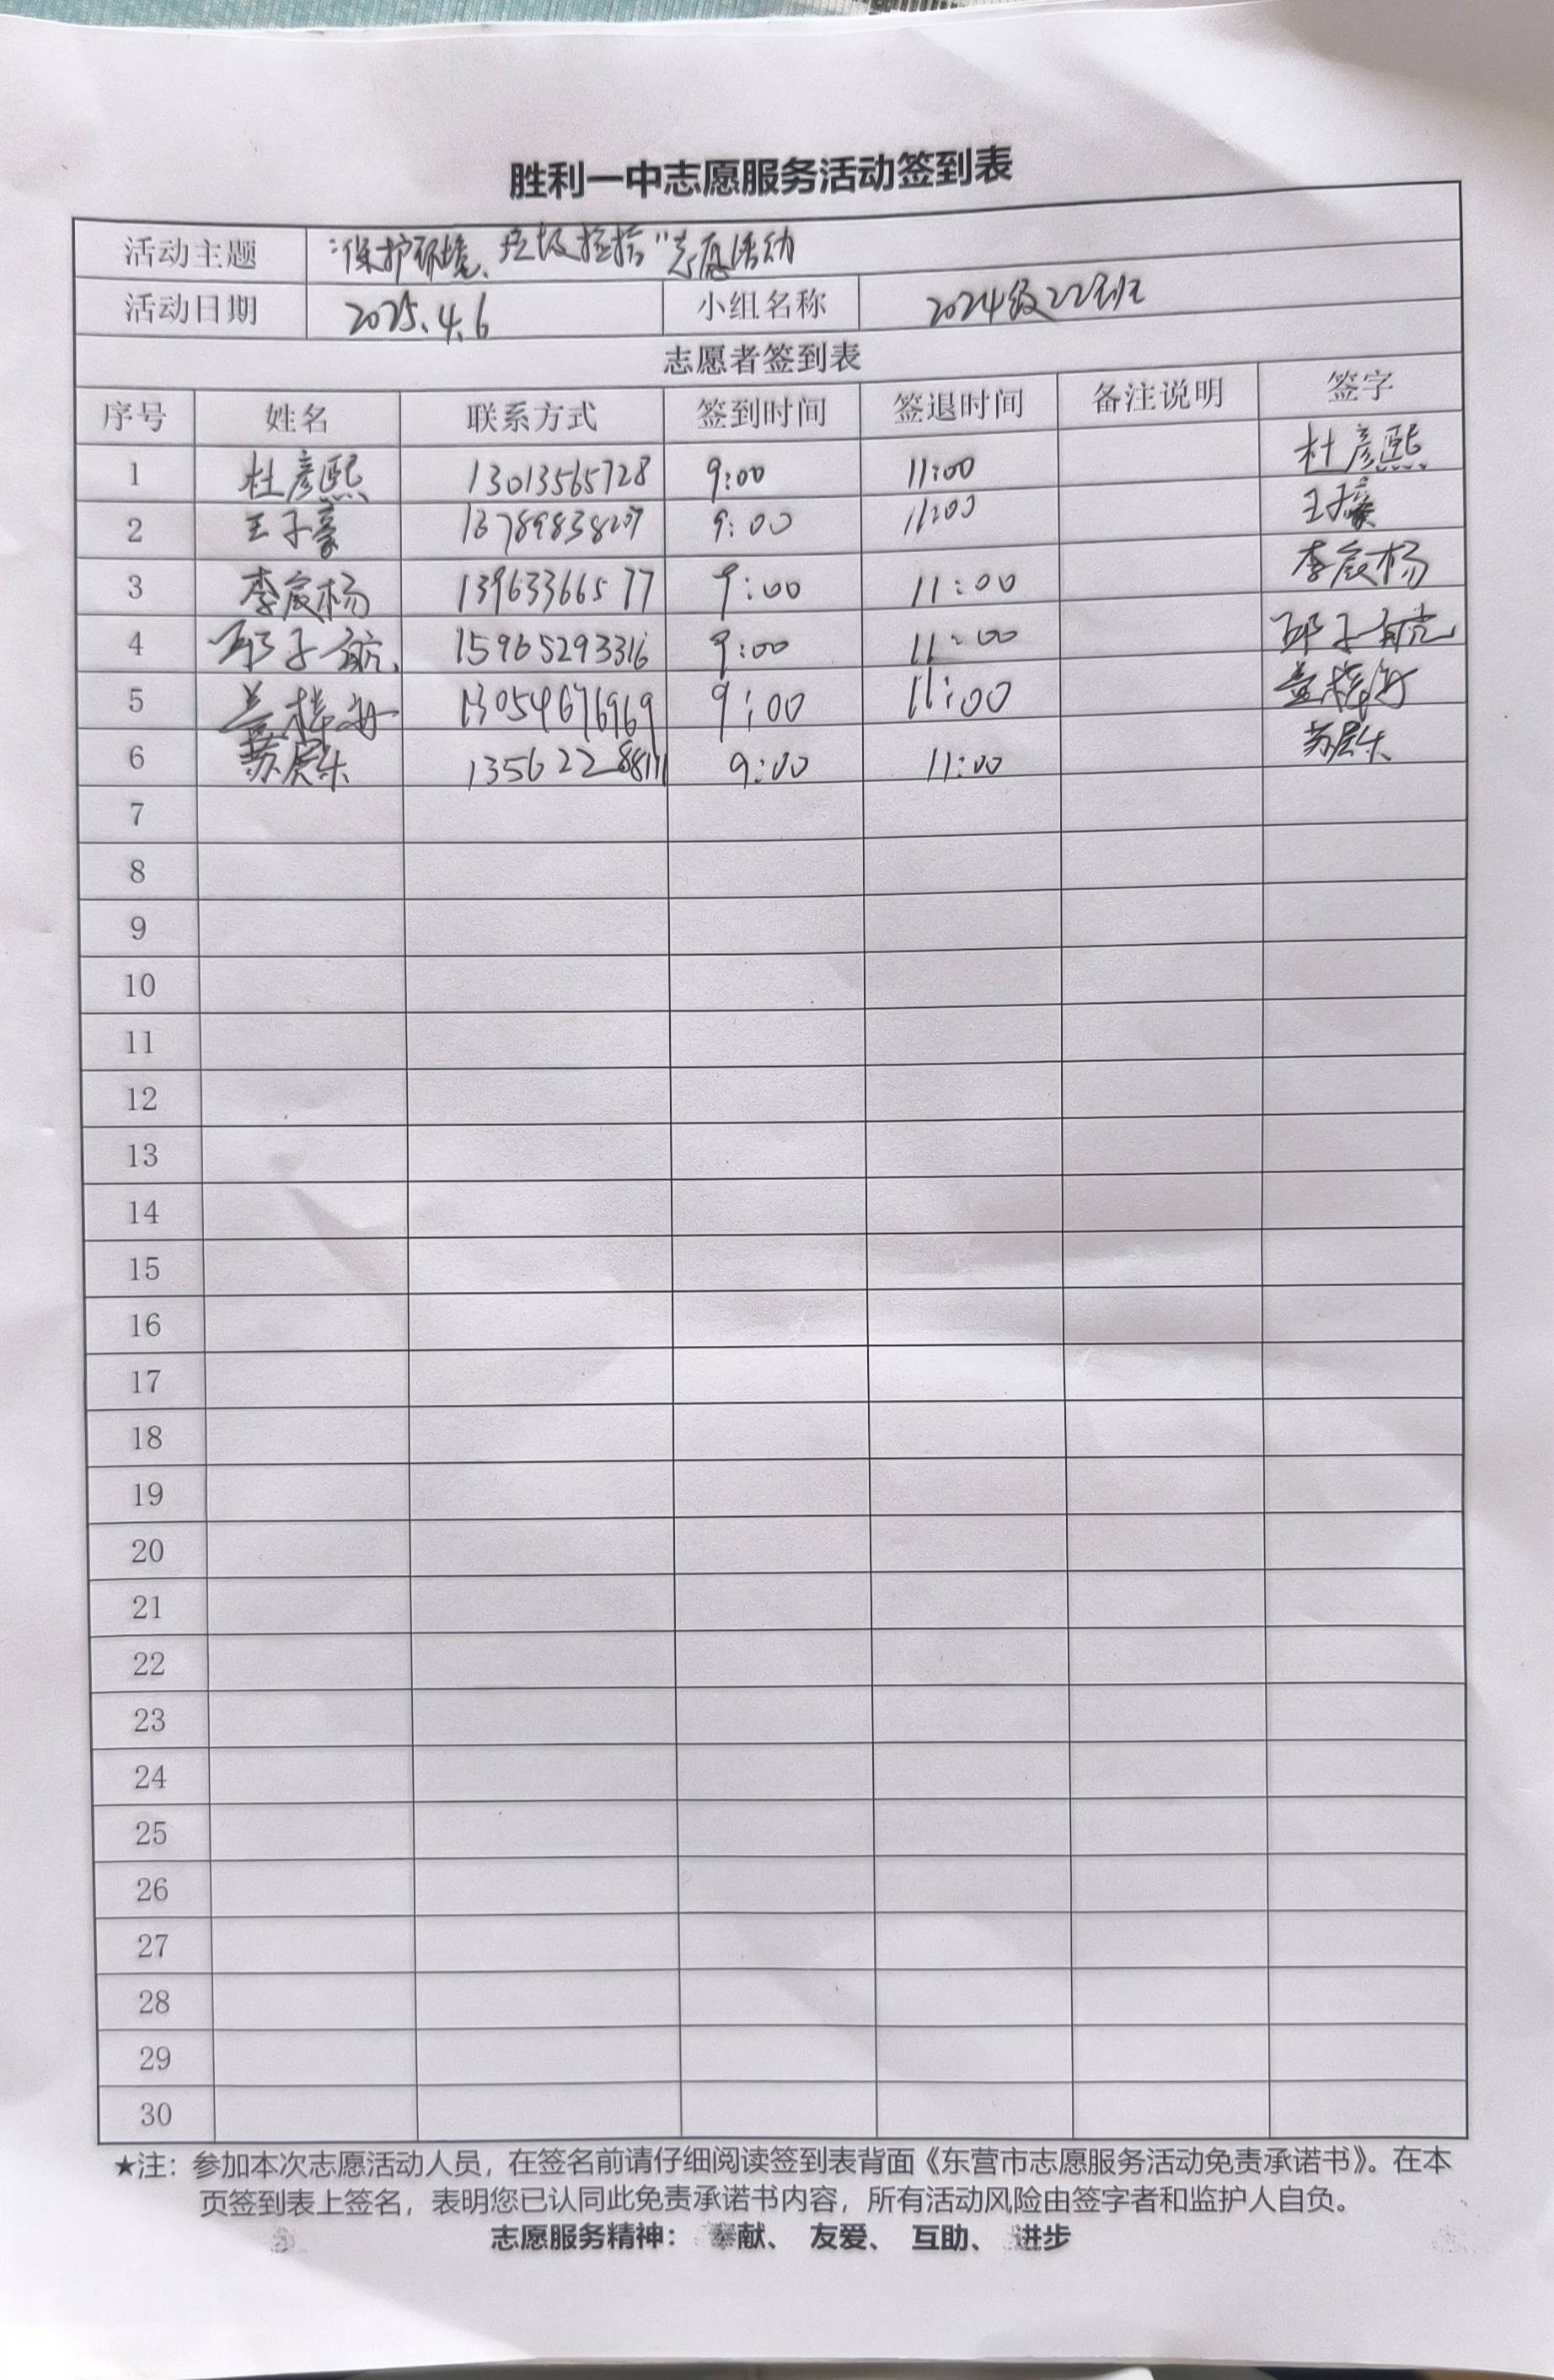 胜利一中志愿服务活动签到表
活动主题 "保护环境、垃圾捡拾"志愿活动
活动日期 2025.4.6 小组名称 2024级22班
志愿者签到表
序号 姓名 联系方式 签到时间 签退时间 备注说明 签字
1 杜彦熙 13013565728 9:00 11:00 杜彦熙
2 王子豪 9:00 11:00 王子豪
3 李宸杨 13963366577 9:00 11:00 李宸杨
4 邱子航 15965293316 9:00 11:00 邱子航
5 盖梓 13054676969 9:00 11:00 盖梓
6 苏宸乐 13562288111 9:00 11:00 苏宸乐
7
8
9
10
11
12
13
14
15
16
17
18
19
20
21
22
23
24
25
26
27
28
29
30
★注：参加本次志愿活动人员，在签名前请仔细阅读签到表背面《东营市志愿服务活动免责承诺书》。在本
页签到表上签名，表明您已认同此免责承诺书内容，所有活动风险由签字者和监护人自负。
志愿服务精神：奉献、友爱、互助、进步